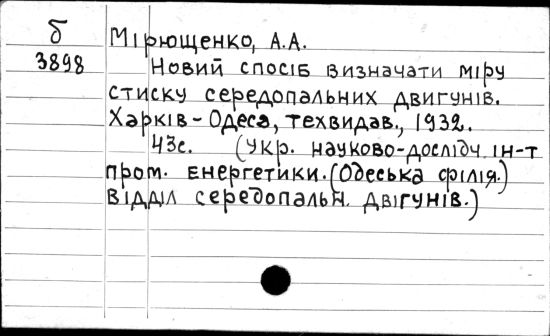 б
3898
Мірющенко, А.А.
Новий спосіб визначати міру
стиску середопальних двигунів.
Харків-Одеса, техвидав., 1932.
43с. (Укр. науково-дослідч. ін-т
пром. енергетики.(Одеська філія.)
Відділ середопальн. двігунів.)